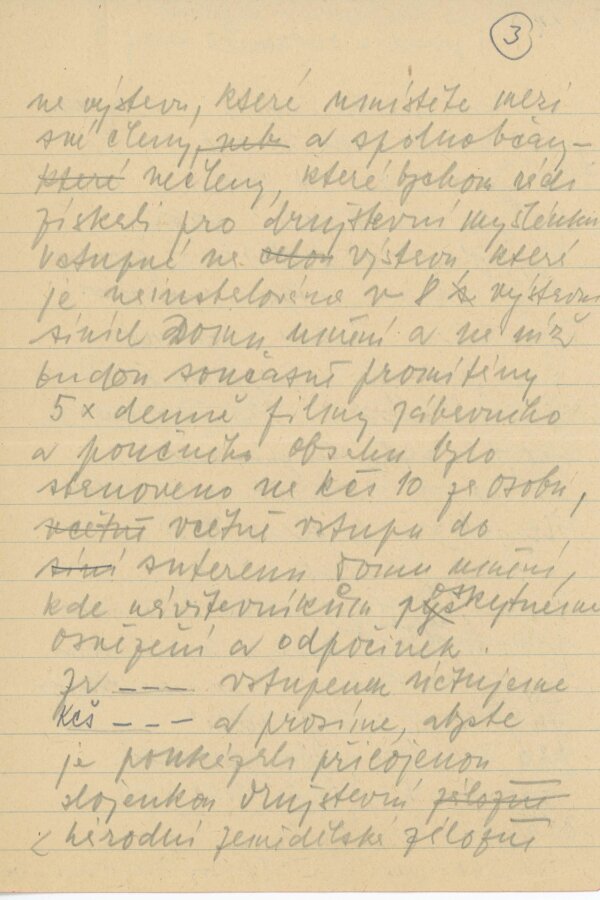 3
na výstavu, které umístěte mezi
své členy, nebo a spoluobčany –
které nečleny, které bychom rádi
získali pro družstevní myšlenku
Vstupné na celou výstavu které
je nainstalována v 8 s výstavní
síních Domu umění a na níž
budou současně promítány
5 x denně filmy zábavního
a poučného obsahu bylo
stanoveno na Kčs 10 za osobu,
včetně včetně vstupu do
síní suterenu Domu umění,
kde návštěvníkům poskytneme
osvěžení a odpočinek.
Za --- vstupenek účtujeme
Kčs --- a prosíme, abyste
je poukázali přiloženou
složenkou Družstevní záložně
Národní zemědělské záložně